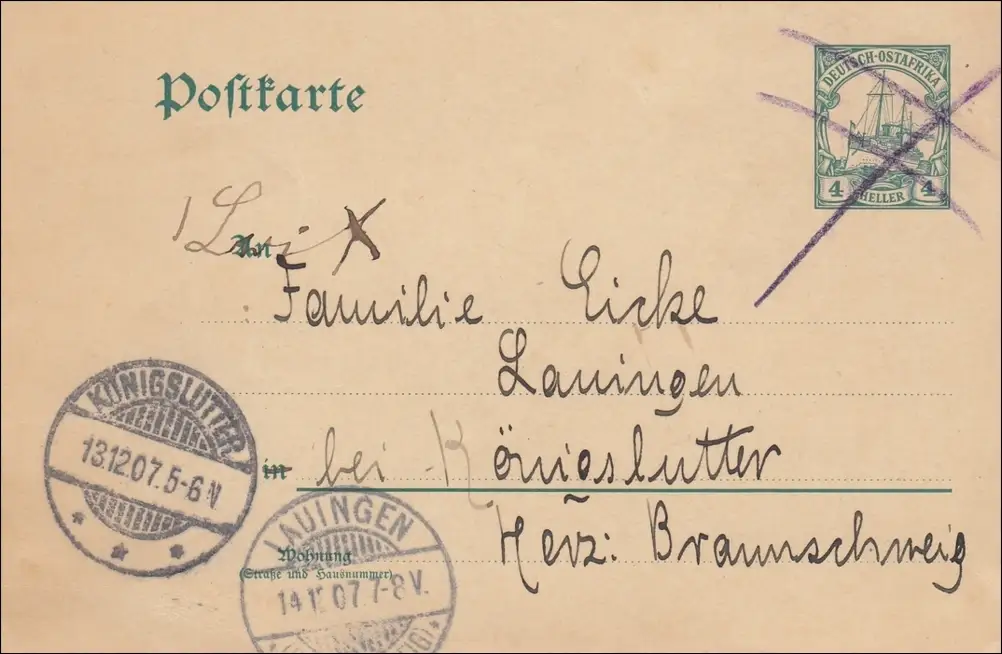 Postkarte
DEUTSCH-OSTAFRIKA
4 HELLER 4
An
Familie Eicke
Lauingen
in bei Königslutter
Herz: Braunschweig
Wohnung
(Straße und Hausnummer)
KÖNIGSLUTTER
13.12.07.5-6 N
LAUINGEN
14.12.07 7-8 V.